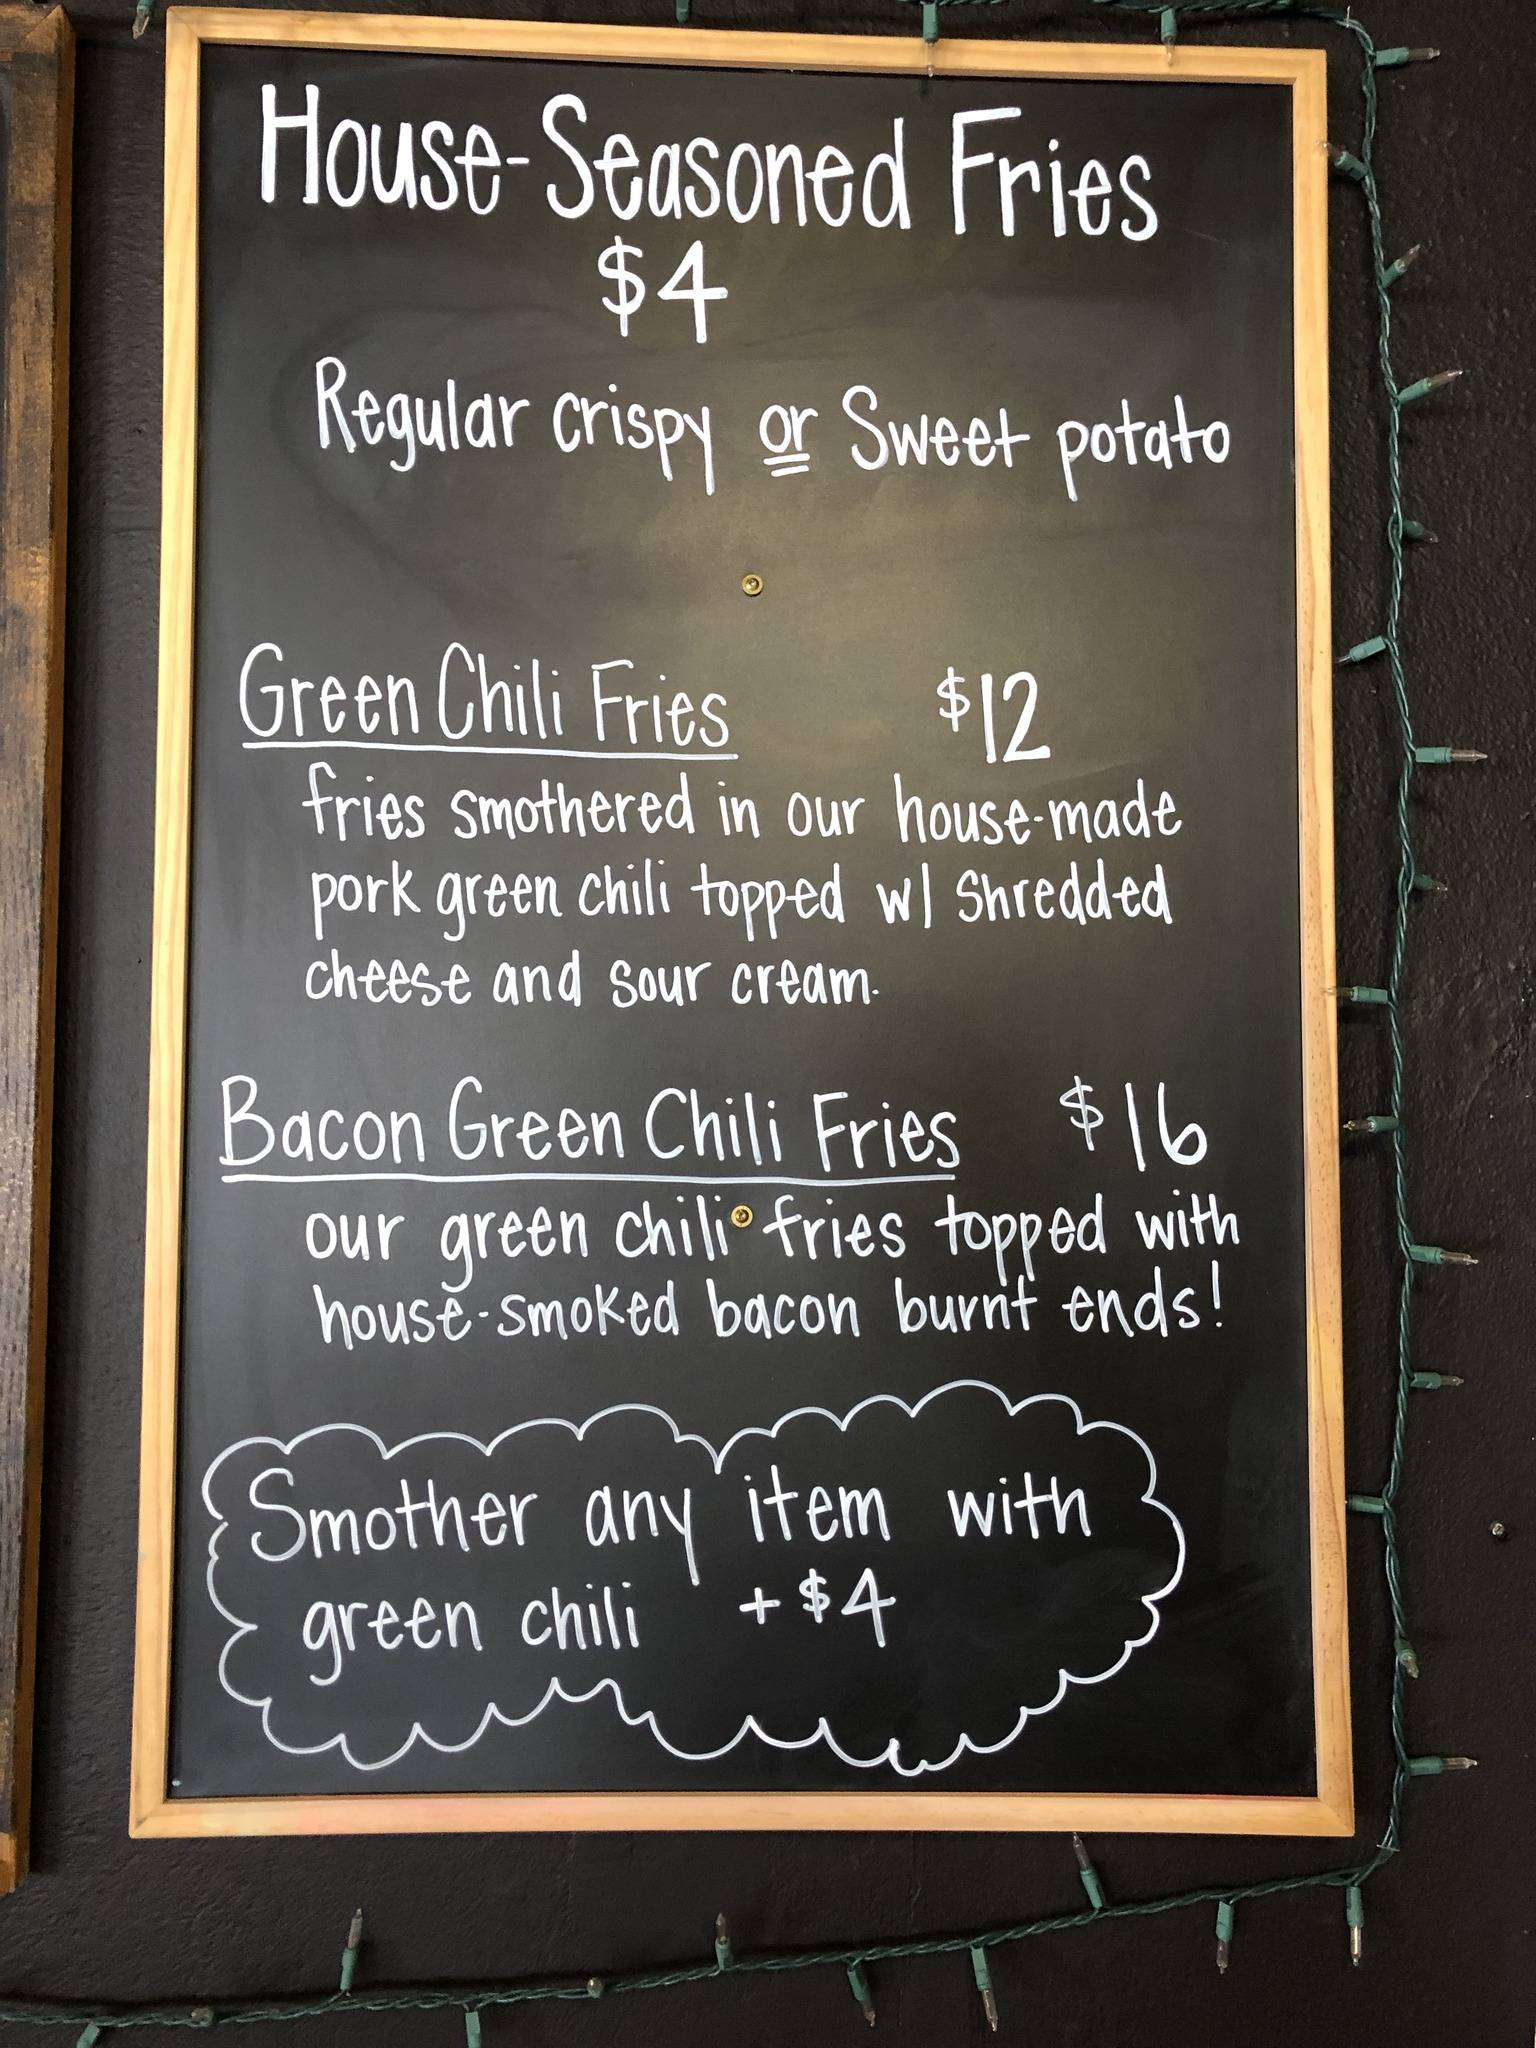 House-Seasoned Fries
$4
Regular crispy or Sweet potato
Green Chili Fries $12
fries smothered in our house-made
pork green chili topped w/ shredded
cheese and sour cream.
Bacon Green Chili Fries $16
our green chili fries topped with
house-smoked bacon burnt ends!
Smother any item with
green chili +$4